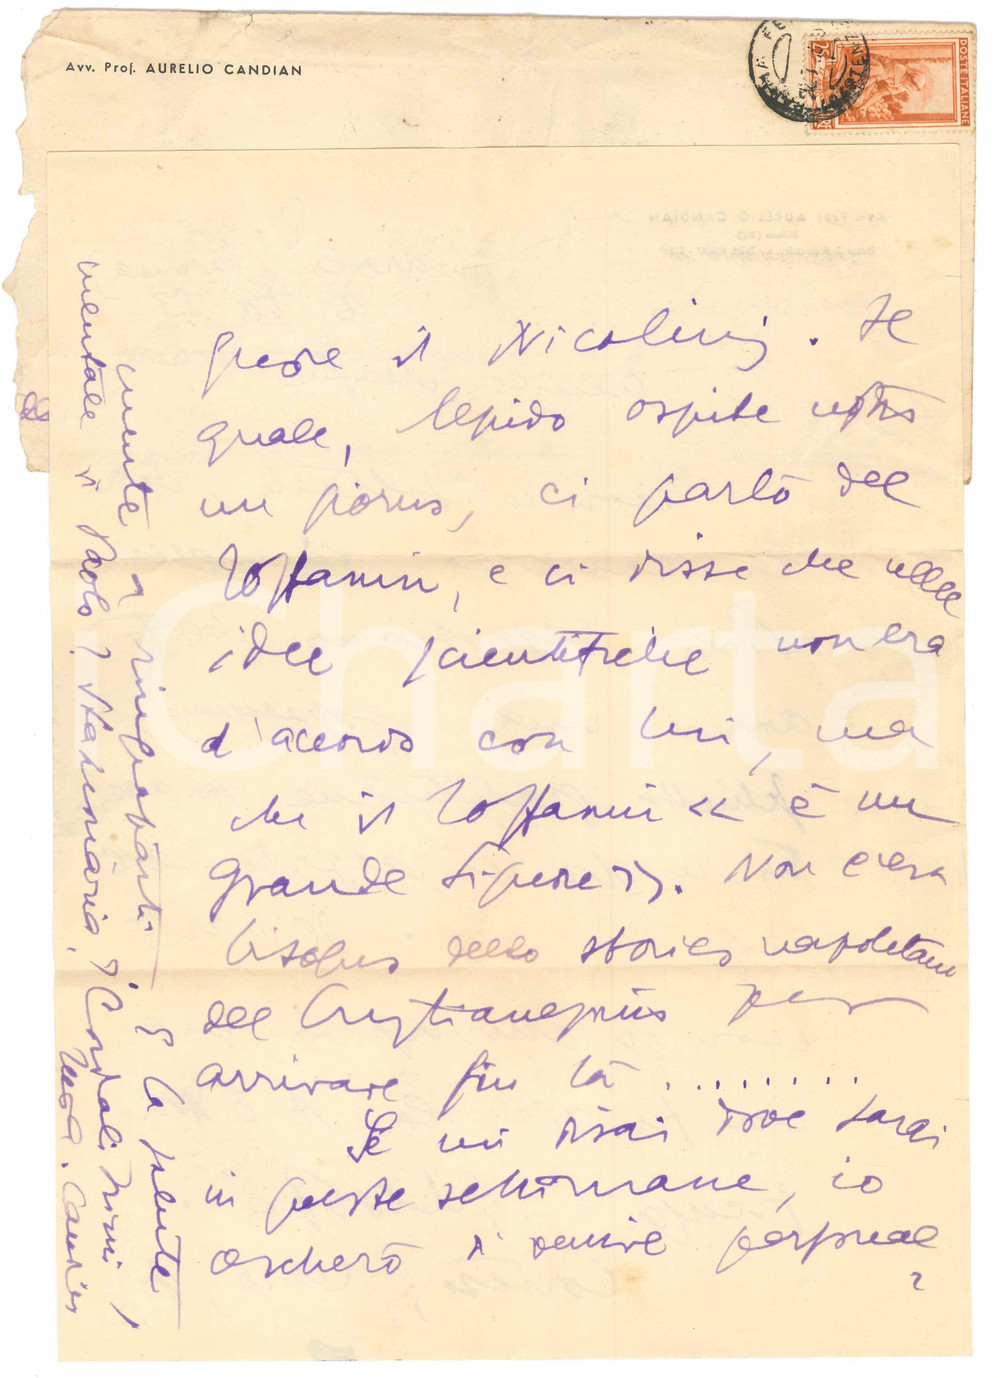 Avv. Prof. AURELIO CANDIAN
POSTE ITALIANE
il Nicolini. Il
quale, lepido ospite nostro
un giorno, ci parlò del
Toffanin, e ci disse che nelle
idee scientifiche non era
d'accordo con lui, ma
che il Toffanin << è un
grande signore >>. Non c'era
bisogno dello storico napoletano
del Cristianesimo per
arrivare fin là .........
Se mi dirai dove sarai
in queste settimane, io
cercherò di venire personal
mente a ringraziarti. E la salute
mentale di Paolo? Stazionaria.
Cordialissimi,
tuo A. Candian
iCharta